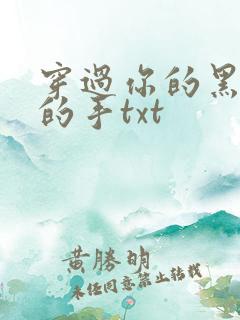 穿過你的黑
的手txt
黄勝明
未经同意禁止转载